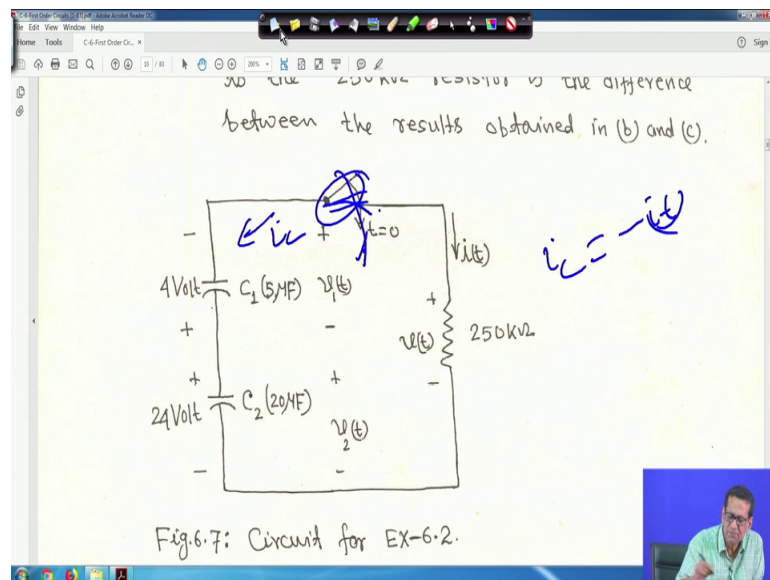 C-6-First Order Circuits [1-81].pdf - Adobe Acrobat Reader DC
File Edit View Window Help
Home Tools C-6-First Order Cir... × Sign
10 / 83 200%
to the 250 KΩ resistor is the difference
between the results obtained in (b) and (c).
ic = -i(t)
ic
t=0
i(t)
- +
4Volt C₁ (5μF) v₁(t)
+ -
+
v(t) 250KΩ
-
+ +
24Volt C₂ (20μF) v₂(t)
- -
Fig.6.7: Circuit for EX-6.2.